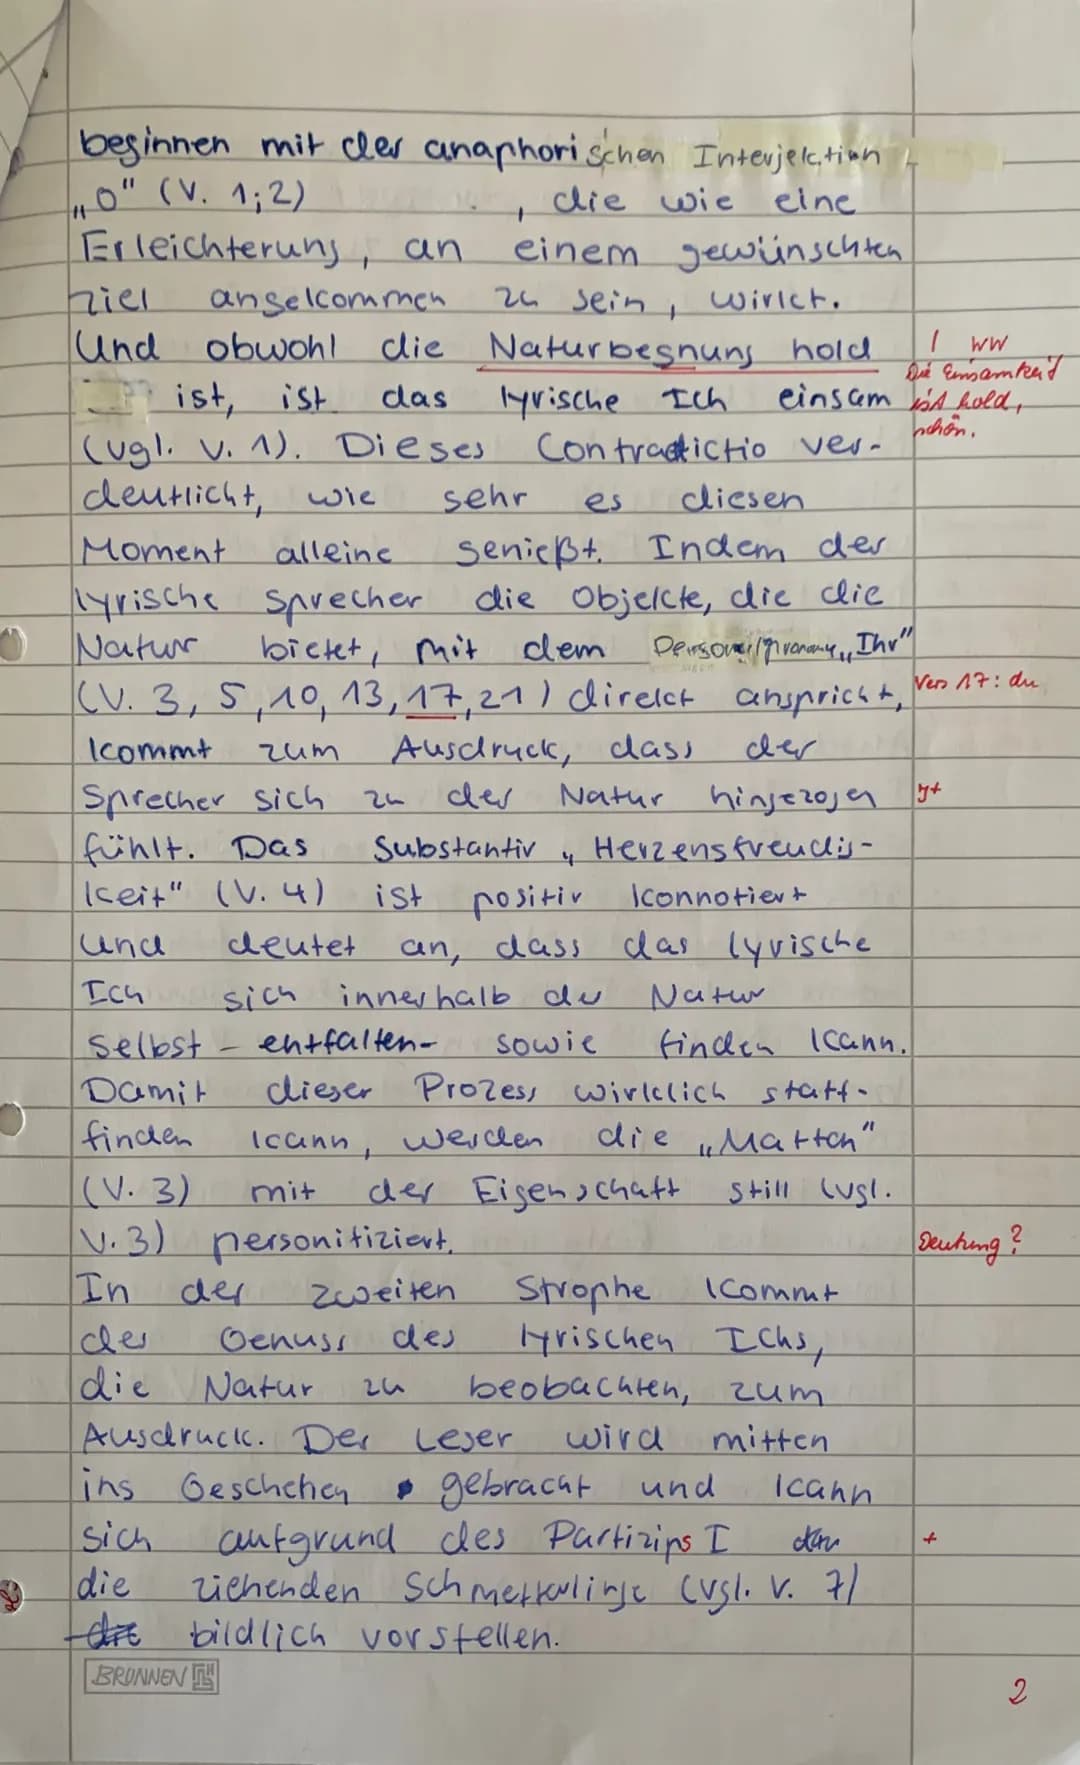 beginnen mit der anaphorischen Interjektion
„O" (V. 1;2) , die wie eine
Erleichterung, an einem gewünschten
Ziel angekommen zu sein, wirkt.
Und obwohl die Naturbegnung hold | WW
Die Einsamkeit
ist, ist das lyrische Ich einsam ist hold,
schön.
(vgl. V. 1). Dieses Contradictio ver-
deutlicht, wie sehr es diesen
Moment alleine genießt. Indem der
lyrische Sprecher die Objekte, die die
Natur bietet, mit dem Personalpronomen „Ihr"
(V. 3, 5, 10, 13, 17, 21) direkt anspricht, Vers 17: du
kommt zum Ausdruck, dass der
Sprecher sich zu der Natur hingezogen
fühlt. Das Substantiv „Herzensfreudig-
keit" (V. 4) ist positiv konnotiert
und deutet an, dass das lyrische
Ich sich innerhalb der Natur
selbst - entfalten- sowie finden kann.
Damit dieser Prozess wirklich statt-
finden kann, werden die „Matten"
(V. 3) mit der Eigenschaft still (vgl.
V. 3) personifiziert. Deutung?
In der zweiten Strophe kommt
der Genuss des lyrischen Ichs,
die Natur zu beobachten, zum
Ausdruck. Der Leser wird mitten
ins Geschehen gebracht und kann
sich aufgrund des Partizips I +
die ziehenden Schmetterlinge (vgl. V. 7)
bildlich vorstellen.
BRUNNEN
2